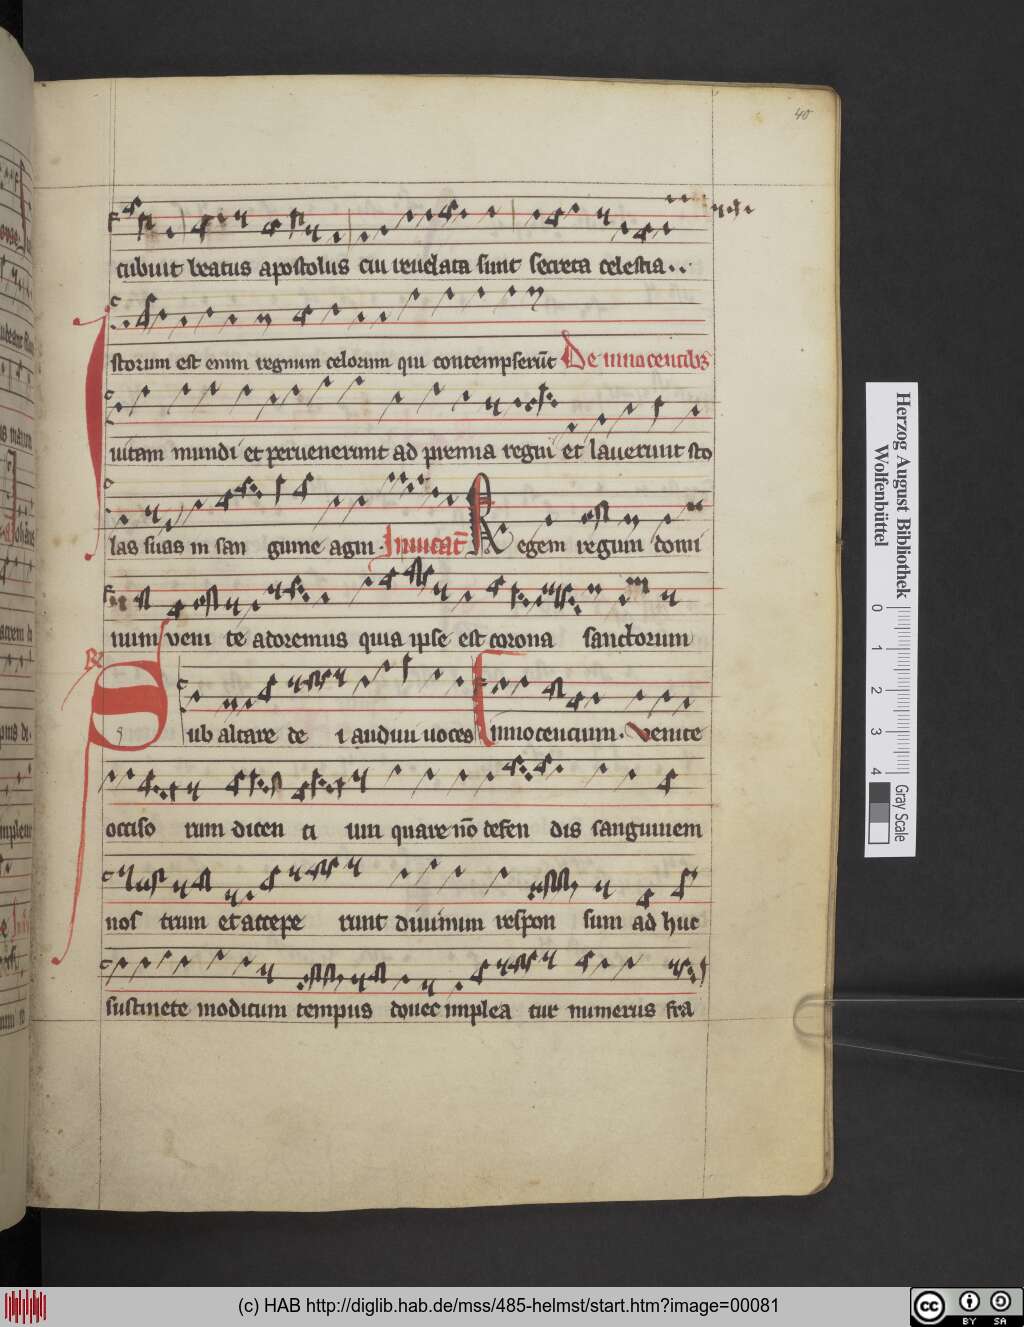 40
cubuit beatus apostolus cui reuelata sunt secreta celestia..
Istorum est enim regnum celorum qui contempserūt De innocentibꝫ
uitam mundi et peruenerunt ad premia regni et lauerunt sto
las suas in san guine agni. Inuitat̄ Regem regum domi
num veni te adoremus quia ipse est corona sanctorum
R
Sub altare de i audiui uoces innocencium. Venite
occiso rum dicen ti um quare nō defen dis sanguinem
nos trum et accepe runt diuinum respon sum ad huc
sustinete modicum tempus donec implea tur numerus fra
Herzog August Bibliothek
Wolfenbüttel
0 1 2 3 4
Gray Scale
(c) HAB http://diglib.hab.de/mss/485-helmst/start.htm?image=00081
cc BY SA